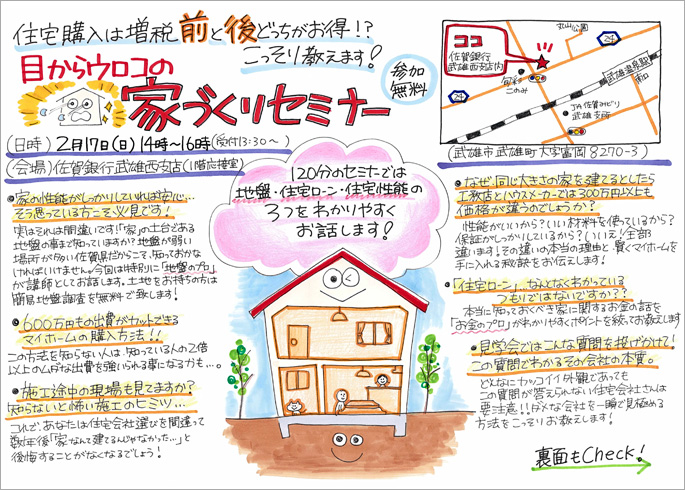 住宅購入は増税前と後どっちがお得!?
こっそり教えます!
目からウロコの
家づくりセミナー
参加
無料
(日時) 2月17日(日)14時〜16時(受付13:30〜)
(会場)佐賀銀行武雄西支店(1階応接室)
丸山公園
ココ
佐賀銀行
武雄西支店内
34
旬彩
このみ
武雄温泉駅
南口
JA佐賀みどり
武雄支所
(武雄市武雄町大字富岡8270-3)
120分のセミナーでは
地盤・住宅ローン・住宅性能の
3つをわかりやすく
お話します!
・家の性能がしっかりしていれば安心…
そう思っている方こそ必見です!
実はそれは間違いです!「家」の土台である
地盤の事まで知っていますか?地盤が弱い
場所が多い佐賀県だからこそ、知っておかな
ければいけません。今回は特別に「地盤のプロ」
が講師としてお話します。土地をお持ちの方は
簡易地盤調査を無料で致します!
・600万円もの出費がカットできる
マイホームの購入方法!!
この方法を知らない人は、知っている人の2倍
以上のムダな出費を強いられる事になるかも…。
・施工途中の現場も見てますか?
知らないと怖い施工のヒミツ…
これで、あなたは住宅会社選びを間違って
数年後「家なんて建てるんじゃなかった…」と
後悔することがなくなるでしょう!
・なぜ、同じ大きさの家を建てるとしたら
工務店とハウスメーカーでは300万円以上も
価格が違うのでしょうか?
性能がいいから?いい材料を使っているから?
保証がしっかりしているから?いいえ!全部
違います!その違いの本当の理由と、賢くマイホームを
手に入れる秘訣をお伝えします!
・「住宅ローン」…なんとなくわかっている
つもりではないですか??
本当に知っておくべき家に関するお金の話を
「お金のプロ」がわかりやすくポイントを絞ってお教えします
・見学会ではこんな質問を投げかけて!
この質問でわかるその会社の本質。
どんなにカッコイイ外観であっても
この質問が答えられない住宅会社さんは
要注意!!ダメな会社を一瞬で見極める
方法をこっそりお教えします!
裏面もCheck!